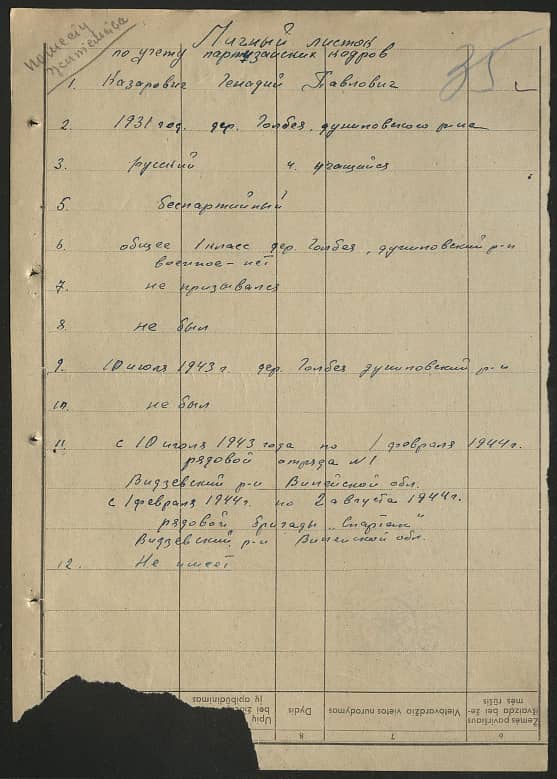 Личный листок
по учету партизанских кадров
35
1. Казарович Генадий Павлович
2. 1931 год. дер. Голбея, дуниловского р-на
3. русский 4. учащийся
5. беспартийный
6. общее 1 класс дер. Голбея, дуниловский р-н
военное – нет
7. не призывался
8. не был
9. 10 июля 1943 г. дер. Голбея дуниловский р-н
10. не был
11. с 10 июля 1943 года по 1 февраля 1944 г.
рядовой отряда №1
Видзевский р-н Вилейской обл.
с 1 февраля 1944 г. по 2 августа 1944 г.
рядовой бригады „Спартак"
Видзевский р-н Вилейской обл.
12. Не имеет
Upių
bei
ų apibūdinimas
Dydis
8
Vietovardžio vietos nurodymas
7
Žemės paviršiaus
išvaizda bei že-
mės rūšis
6